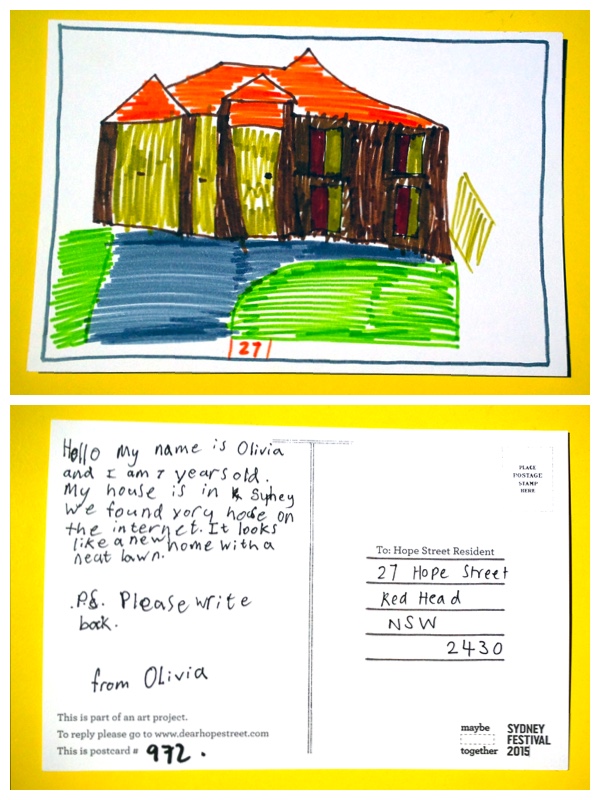 27
Hello My name is Olivia
and I am 7 years old.
My house is in Sydney
We found yory hoose on
the internet. It looks
like a new home with a
neat lawn.
.P.S. Please write
back.
from Olivia
This is part of an art project.
To reply please go to www.dearhopestreet.com
This is postcard # 972.
PLACE
POSTAGE
STAMP
HERE
To: Hope Street Resident
27 Hope Street
Red Head
NSW
2430
maybe
together
SYDNEY
FESTIVAL
2015